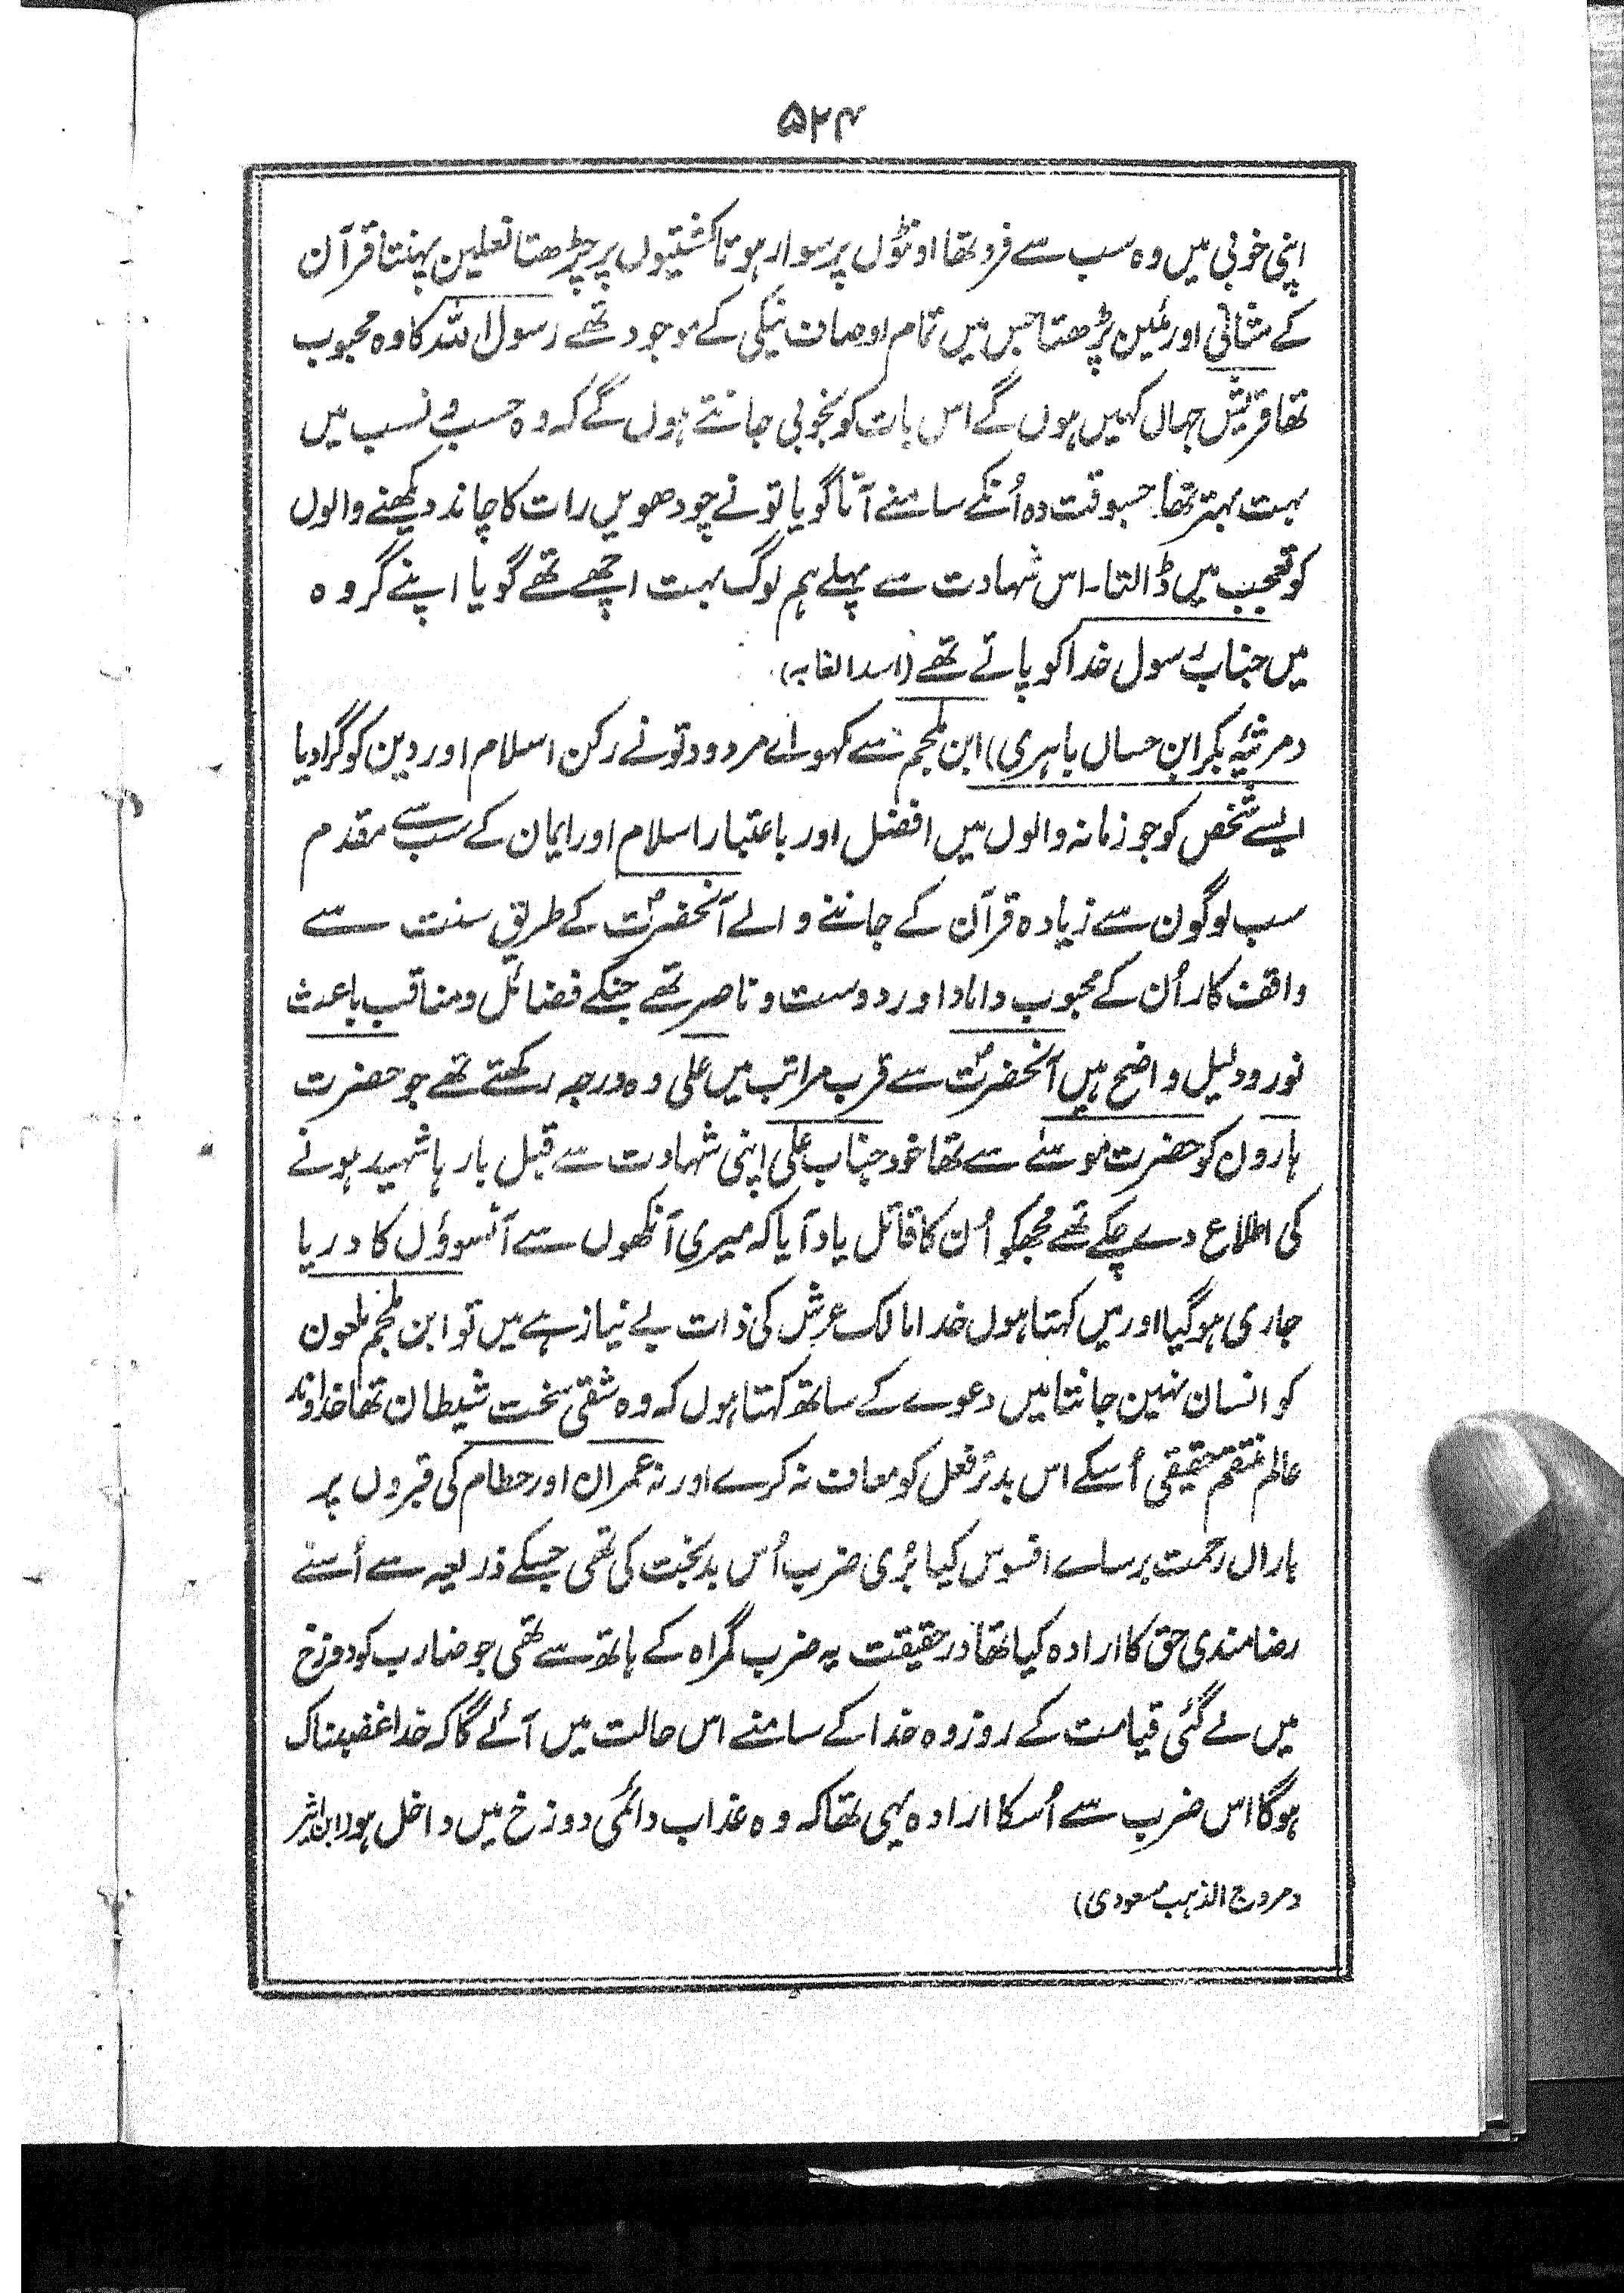 ۵۲۴
اپنی خوبی میں وہ سب سے فرد تھا اونٹوں پر سوار ہوتا کشتیوں پر چڑھتا نعلین پہنتا قرآن
کے مثانی اور مئین پڑھتا جس میں تمام اوصاف نیکی کے موجود تھے رسول اللہ کا وہ محبوب
تھا قریش جہاں کہیں ہوں گے اس بات کو بخوبی جانتے ہوں گے کہ وہ حسب و نسب میں
بہت بہتر تھا جسوقت وہ اُنکے سامنے آتا گویا تو نے چودھویں رات کا چاند دیکھنے والوں
کو تعجب میں ڈالتا۔ اس شہادت سے پہلے ہم لوگ بہت اچھے تھے گویا اپنے گروہ
میں جناب رسول خدا کو پاتے تھے (اسد الغابہ)
(مرثیہ بکر ابن حسان باہری) ابن ملجم سے کہو اے مردود تو نے رکن اسلام اور دین کو گرا دیا
ایسے شخص کو جو زمانہ والوں میں افضل اور باعتبار اسلام اور ایمان کے سب سے مقدم
سب لوگون سے زیادہ قرآن کے جاننے والے آنحضرتؐ کے طریق سنت سے
واقف کار اُن کے محبوب داماد اور دوست و ناصر تھے جنکے فضائل و مناقب باعث
نور و دلیل واضح ہیں آنحضرتؐ سے قرب مراتب میں علی وہ درجہ رکھتے تھے جو حضرت
ہارون کو حضرت موسیٰ سے تھا خود جناب علی اپنی شہادت سے قبل بارہا شہید ہونے
کی اطلاع دے چکے تھے مجھکو اُن کا قاتل یاد آیا کہ میری آنکھوں سے آنسوؤں کا دریا
جاری ہو گیا اور میں کہتا ہوں خدا مالک عرش کی ذات بے نیاز ہے میں تو ابن ملجم ملعون
کو انسان نہین جانتا میں دعوے کے ساتھ کہتا ہوں کہ وہ شقی سخت شیطان تھا خداوند
عالم منتقم حقیقی اُسکے اس بدتر فعل کو معاف نہ کرے اور نہ عمران اور حطام کی قبروں پر
باران رحمت برسائے افسوس کیا بُری ضرب اُس بدبخت کی تھی جسکے ذریعہ سے اُسنے
رضامندی حق کا ارادہ کیا تھا در حقیقت یہ ضرب گمراہ کے ہاتھ سے تھی جو ضارب کو دوزخ
میں لے گئی قیامت کے روز وہ خدا کے سامنے اس حالت میں آئے گا کہ خدا غضبناک
ہوگا اس ضرب سے اُسکا ارادہ یہی تھا کہ وہ عذاب دائمی دوزخ میں داخل ہو (ابن اثیر
(مروج الذہب مسعودی)